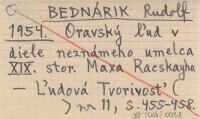 BEDNÁRIK Rudolf
1954. Oravský ľud v
diele neznámeho umelca
XIX. stor. Maxa Racskayho
— Ľudová Tvorivosť (
) nr 11, S. 455-458.